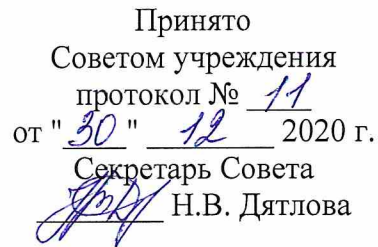 Принято
Советом учреждения
протокол № 11
от "30" 12 2020 г.
Секретарь Совета
Н.В. Дятлова